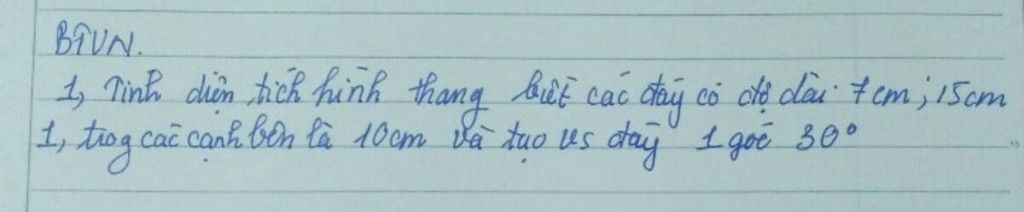 BTVN.
1, Tính diện tích hình thang biết các đáy có độ dài 7cm; 15cm
1, trog các cạnh bên là 10cm và tạo vs đáy 1 góc 30°